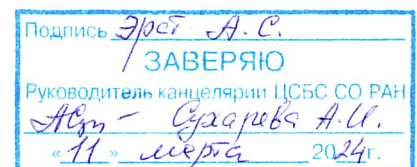 Подпись Эрст А.С.
ЗАВЕРЯЮ
Руководитель канцелярии ЦСБС СО РАН
Сухарева А.И.
«11» марта 2024г.